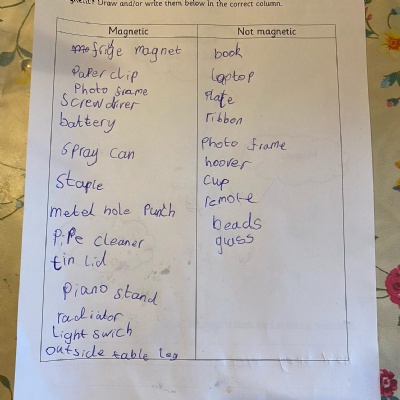 Draw and/or write them below in the correct column.
Magnetic
fridge magnet
Paper clip
Photo frame
Screwdriver
battery
Spray can
Staple
metel hole Punch
PiPe cleaner
tin lid
piano stand
radiator
light swich
outside table leg
Not magnetic
book
laptop
Plate
ribbon
Photo frame
hoover
cup
remote
beads
glass